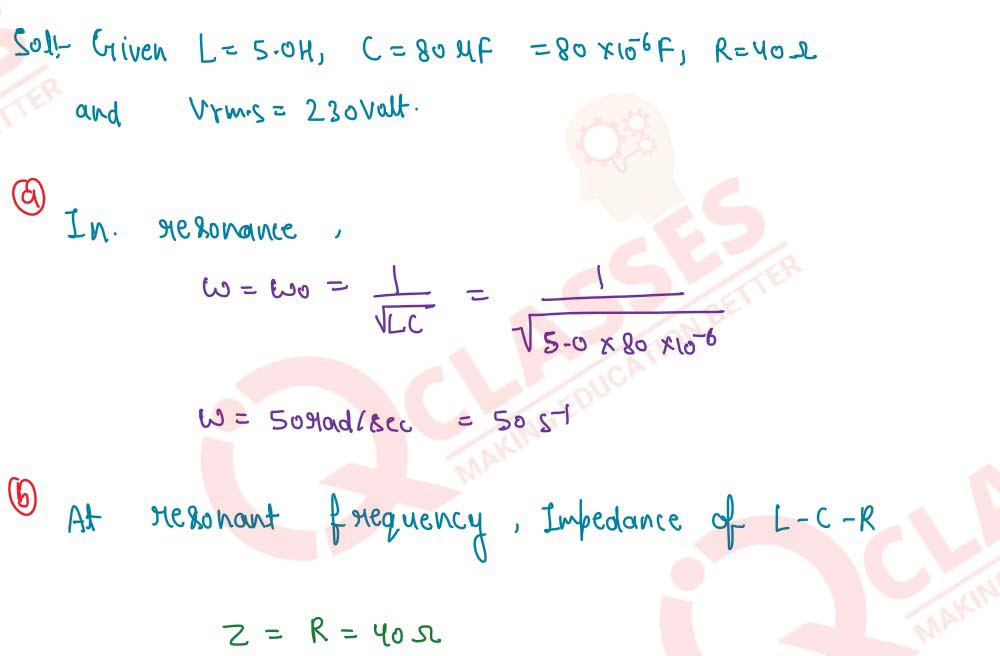 Sol:- Given L = 5.0H, C = 80 μF = 80 × 10⁻⁶ F, R = 40 Ω
and Vr.m.s = 230 Volt.
(a)
In. resonance,
ω = ω₀ = 1/√LC = 1/√5.0 × 80 × 10⁻⁶
ω = 50 rad/sec = 50 s⁻¹
(b)
At resonant frequency, Impedance of L-C-R
Z = R = 40 Ω
CLASSES
MAKING EDUCATION BETTER